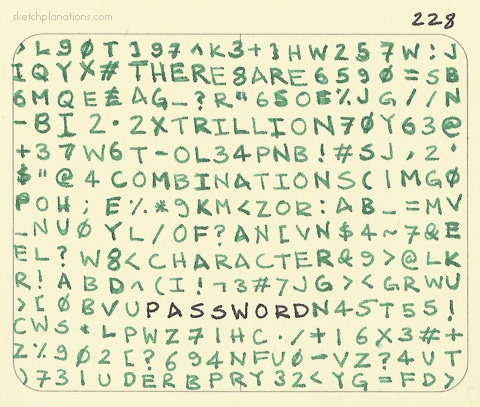 sketchplanations.com
228
, L 9 0 T ] 9 7 ^ K 3 + 3 H W 2 5 7 W : J
I Q Y X # T H E R E 8 A R E 6 5 9 0 = S B
6 M Q E E A G _ ? R " 6 S O E % J G / / N
- B I 2 · 2 X T R I L L I O N 7 0 Y 6 3 @
+ 3 7 W 6 T - O L 3 4 P N B ! # S J , 2 '
$ " @ 4 C O M B I N A T I O N S C I M G 0
P O H ; E % * 9 K M < Z O R : A B _ = M V
_ N U 0 Y L / O F ? A N [ V N $ 4 ~ 7 & E
E L ? W 8 < C H A R A C T E R & 9 > @ L K
R ! A B D ^ ( I ! 7 3 # 7 J G > < G R W U
> [ 0 B V U P A S S W O R D N 4 S T 5 5 !
C W S * L P W Z 7 1 H C · / + 1 6 X 3 # +
Z % 9 0 2 [ ? 6 9 4 N F U 0 - V Z ? 4 U T
) 7 3 1 U D E R B P R Y 3 2 < Y G = F D >